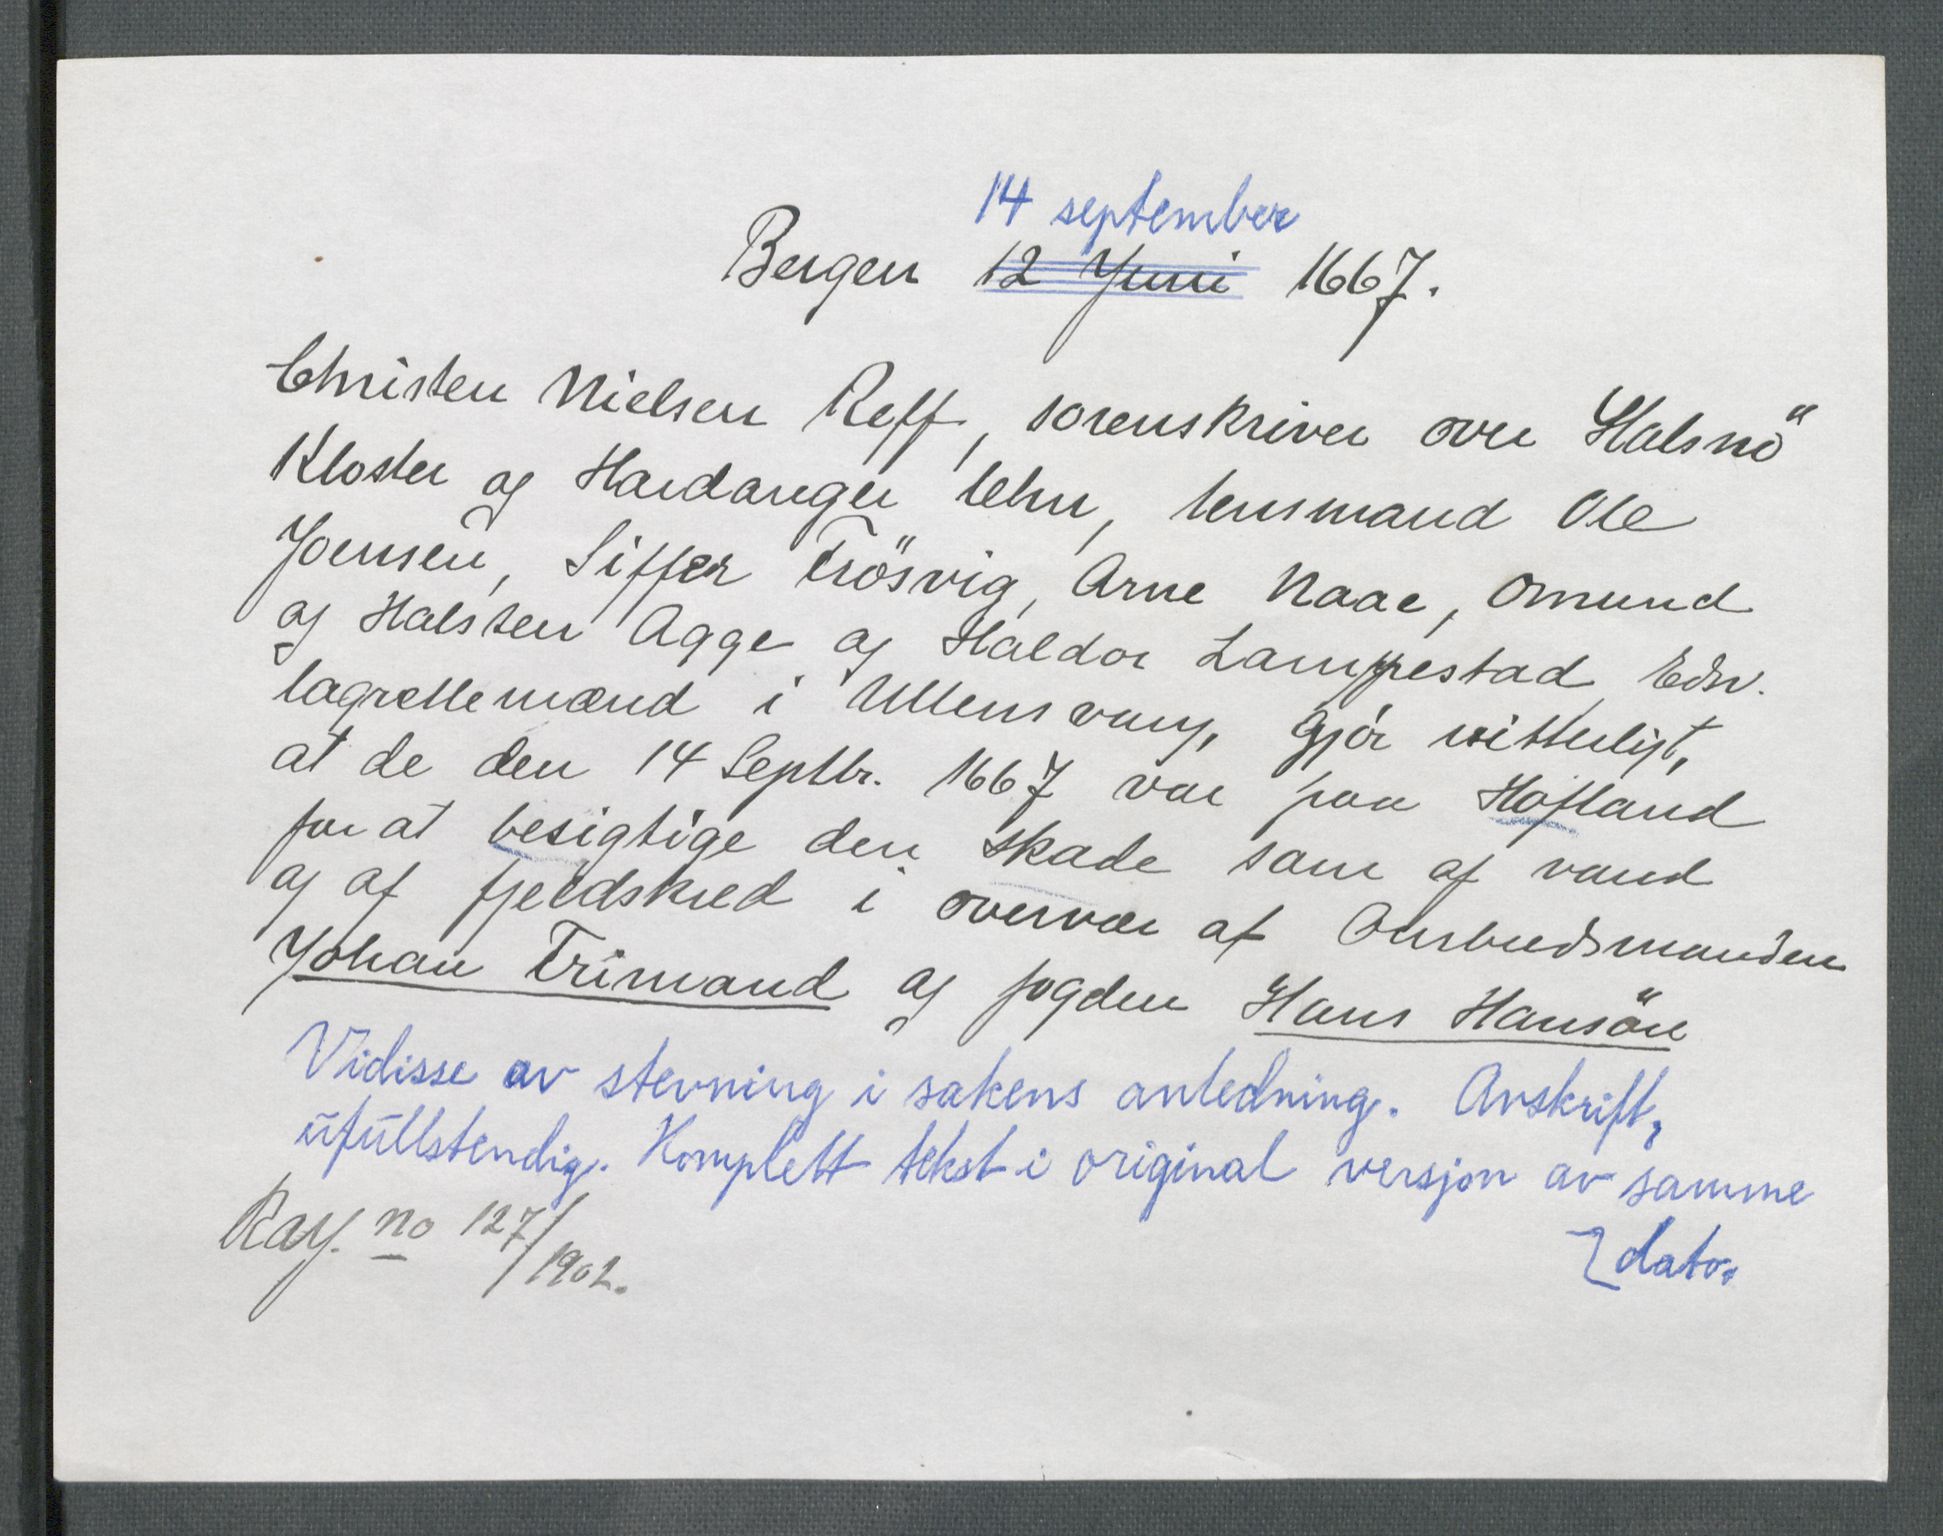 14 september
Bergen 12 Juni 1667.
Christen Nielsen Reff, sorenskriver over Halsnö
Kloster og Hardanger lehn, lensmand Ole
Joensen, Siffer Trösvig, Arne Naae, Omund
og Halsten Agge og Haldor Lampestad Edsv.
lagrettemænd i Ullensvang, Gjör vitterligt,
at de den 14 Septbr. 1667 var paa Hofland
for at besigtige den skade som af vand
og af fjeldskred i overvær af Ombudsmanden
Johan Frimand og fogden Hans Hansön
Vidisse av stevning i sakens anledning. Avskrift,
ufullstendig. Komplett tekst i original versjon av samme
dato.
Kay. no 127/1902.